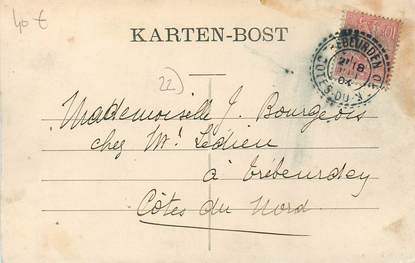 40 €
KARTEN-BOST
22
TREBEURDEN
COTES-DU-N.
18
04
Mademoiselle J. Bourgeois
chez Mr Lédieu
à Trébeurdey
Côtes du Nord